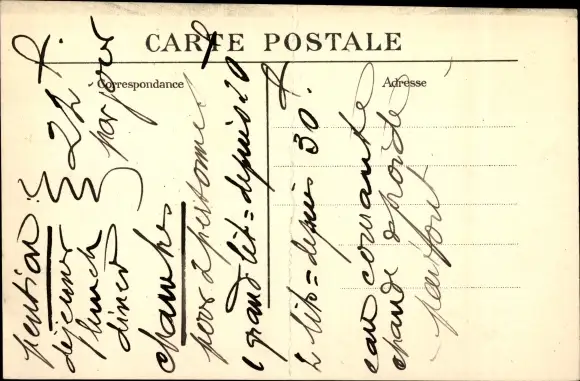 CARTE POSTALE
Correspondance
Adresse
pention:
dejeuner
lunch
diner
22 f.
par jour
chambres
pour 2 personnes
1 grand lit = depuis 20 f
2 lits = depuis 30 f.
eau courante
chaude & froide
partout